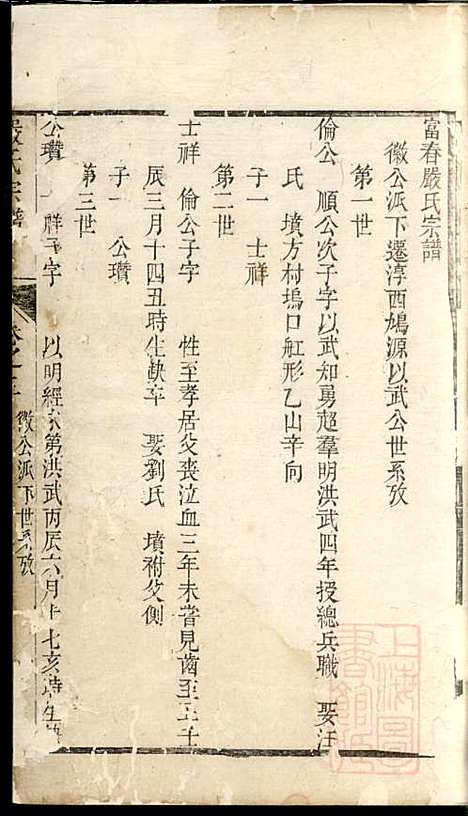 富春嚴氏宗譜
徽公派下遷淳西鳩源以武公世系攷
第一世
倫公 順公次子字以武知勇超羣明洪武四年授總兵職 娶汪
氏 墳方村塢口舡形乙山辛向
子一 士祥
第二世
士祥 倫公子字 性至孝居父喪泣血三年未嘗見齒至正壬
辰三月十四丑時生缺卒 娶劉氏 墳祔父側
子一 公瓚
第三世
公瓚 祥子字 以明經 第洪武丙辰六月 七亥時生
嚴氏宗譜 卷之 徽公派下世系攷
上海圖書館藏